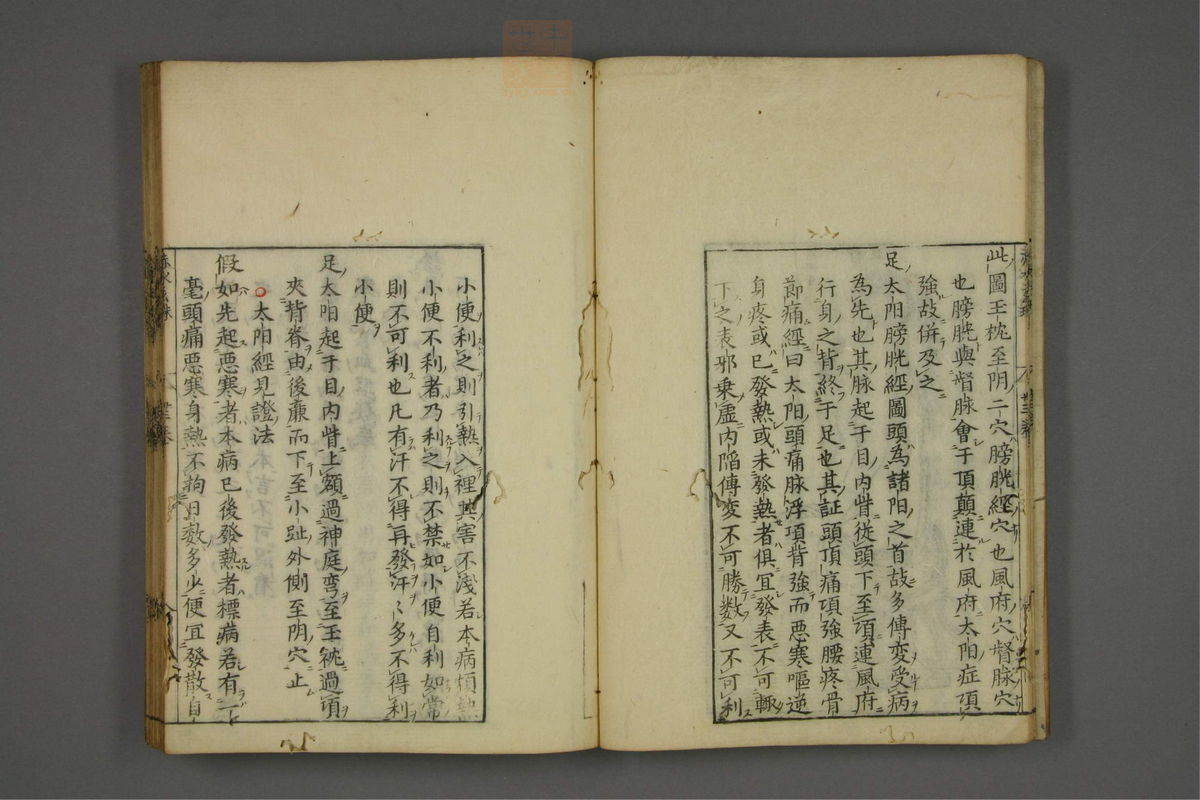 此圖玉枕至阴二穴膀胱經穴也風府穴督脉穴
也膀胱與督脉會于頂顛連於風府太阳症項
強故併及之
足太阳膀胱經圖頭為諸阳之首故多傳変受病
為先也其脉起于目内眥從頭下至項連風府
行身之背終于足也其証頭頂痛項強腰疼骨
節痛經曰太阳頭痛脉浮項背強而悪寒嘔逆
身疼或已發熱或未發熱者俱宜發表不可輙
下之表邪乗虚内陷傳変不可勝数又不可利
小便利之則引熱入裡其害不淺若本病煩熱
小便不利者乃利之則不禁如小便自利如常
則不可利也凡有汗不得再發汗〻多不得利
小便
足太阳起于目内眥上額過神庭弯至玉枕過項
夾背脊由後廉而下至小趾外側至阴穴止
○太阳經見證法
假如先起悪寒者本病已後發熱者標病若有一
毫頭痛悪寒身熱不拘日数多少便宜發散自